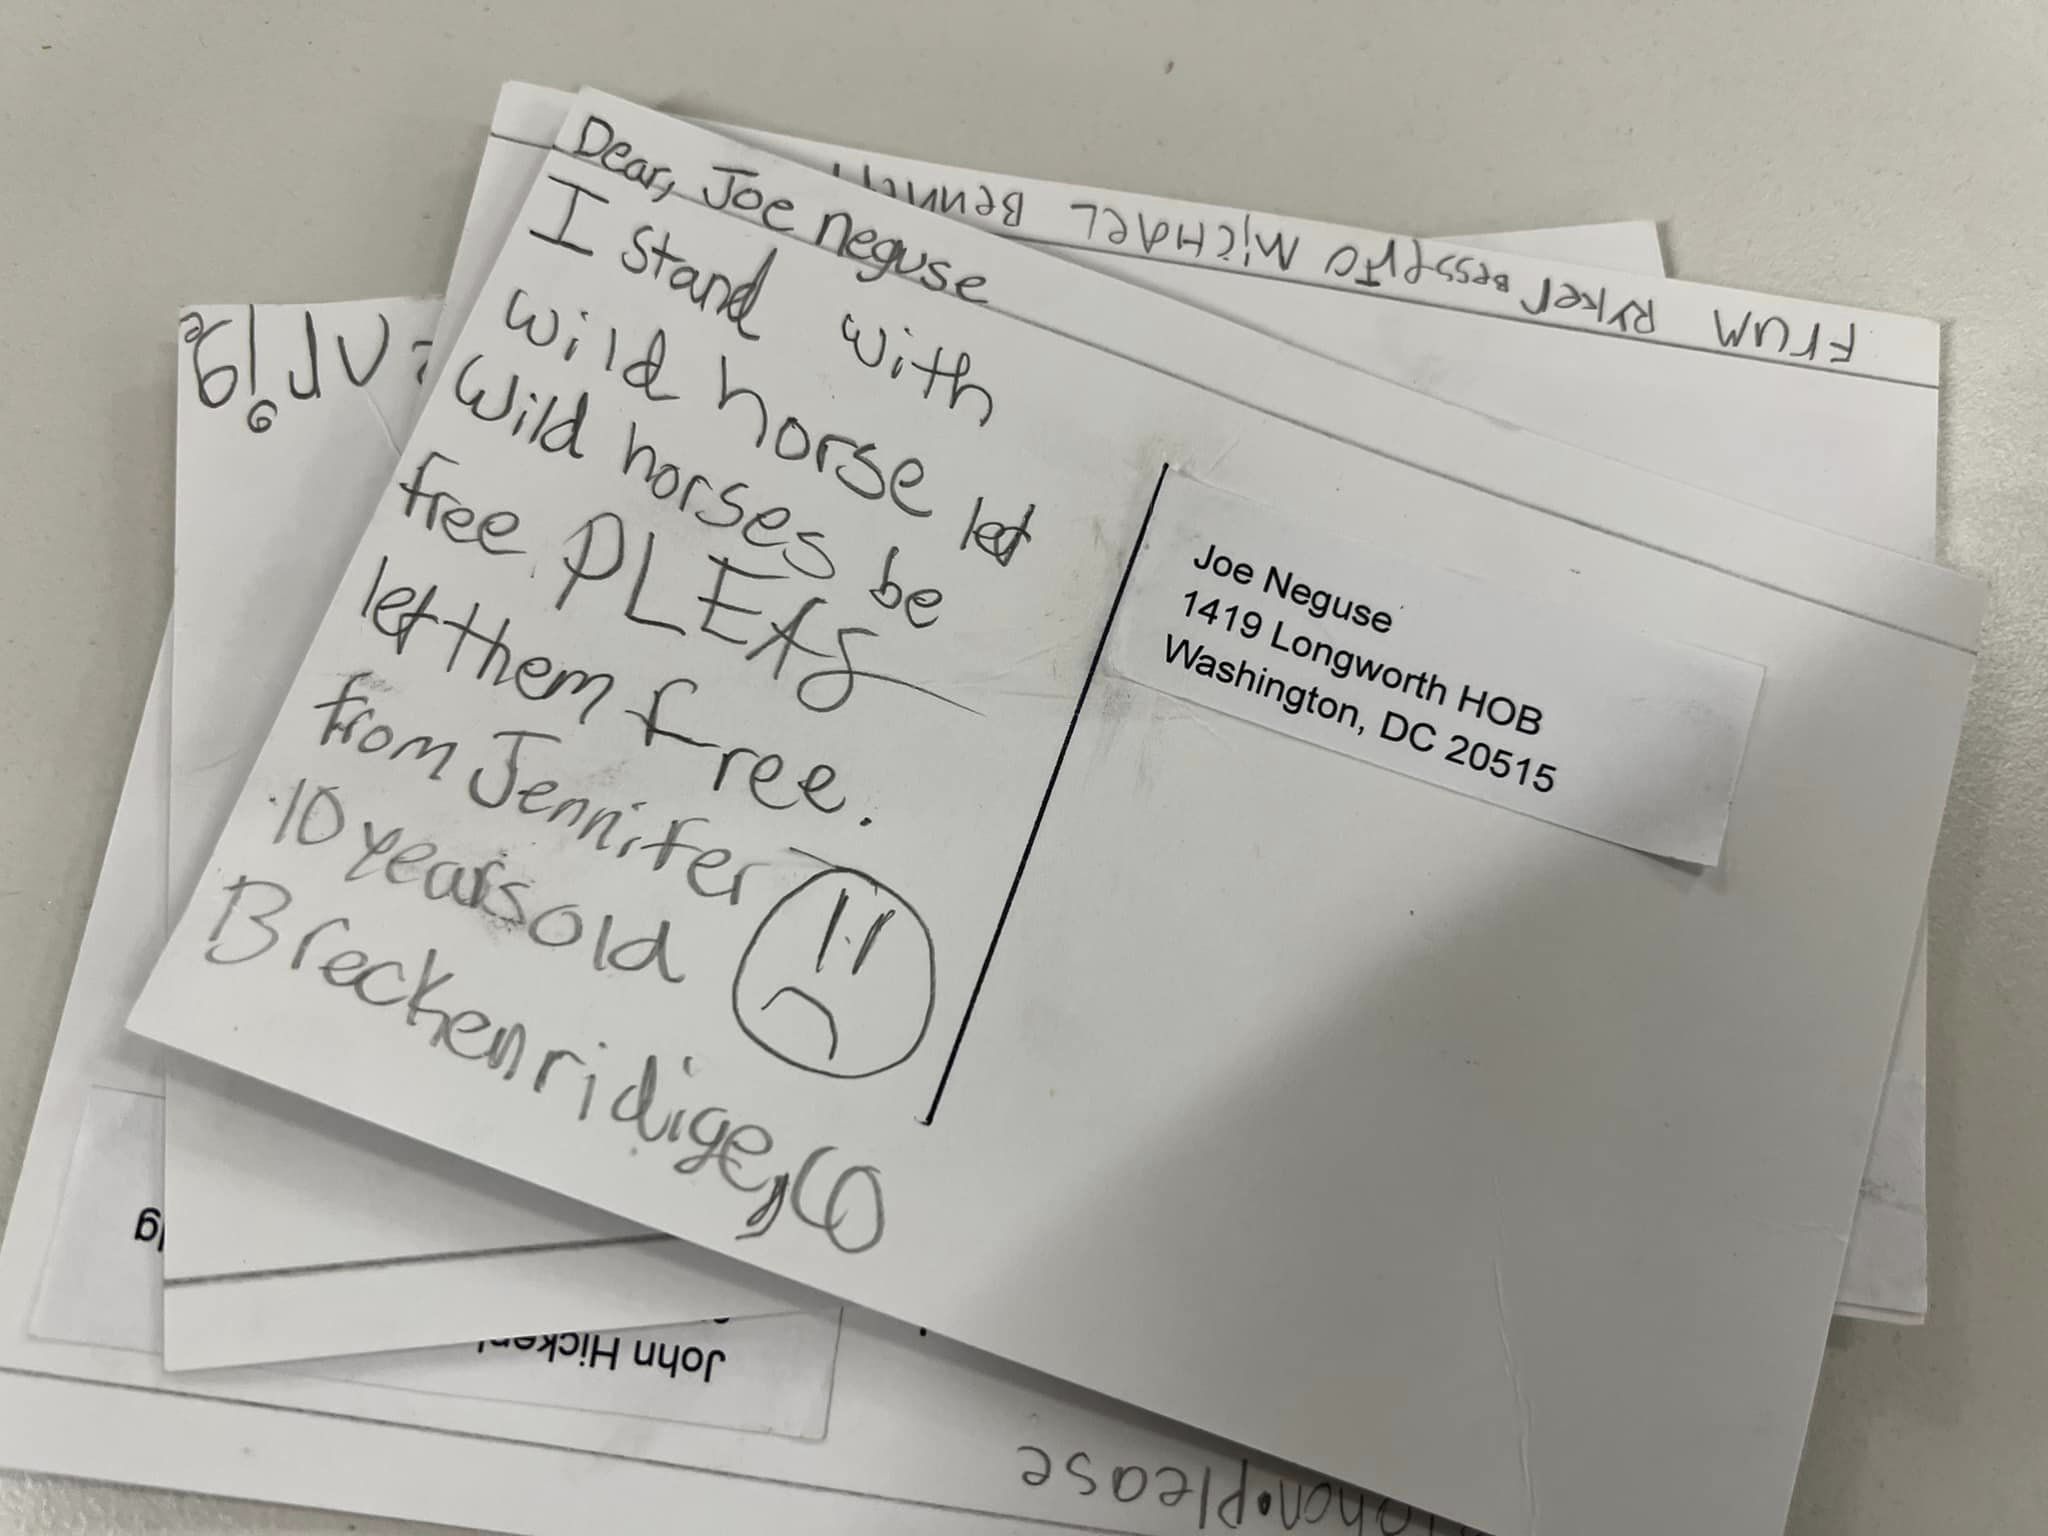 Dear, Joe neguse
I stand with
wild horse let
Wild horses be
free. PLEAS
let them free.
from Jennifer
10 years old
Breckenridige, CO
Joe Neguse
1419 Longworth HOB
Washington, DC 20515
Frum Ryker Bess to MicHaeL
John
please